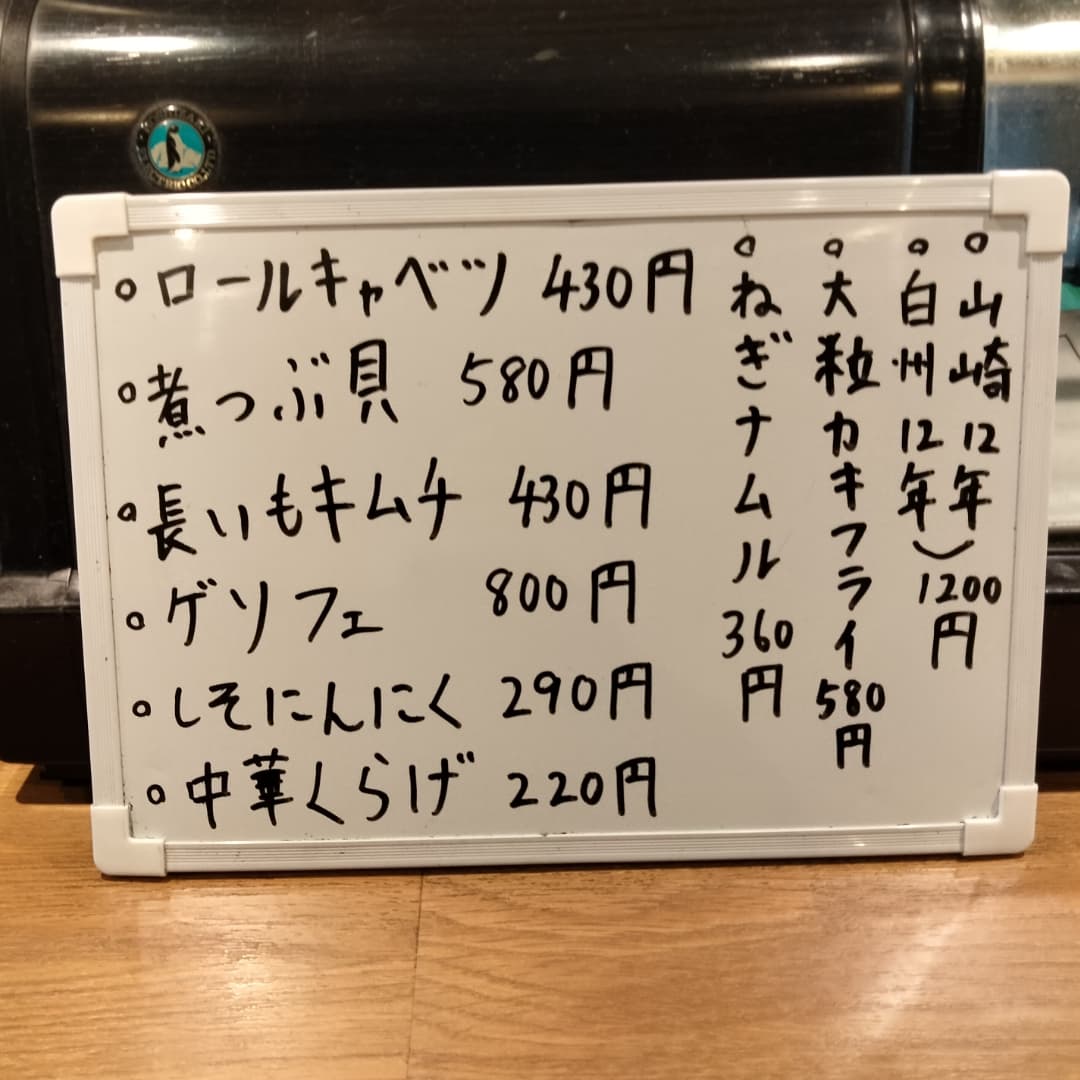 ロールキャベツ 430円
煮つぶ貝 580円
長いもキムチ 430円
ゲソフェ 800円
しそにんにく 290円
中華くらげ 220円
山崎12年
白州12年
1200円
大粒カキフライ 580円
ねぎナムル 360円